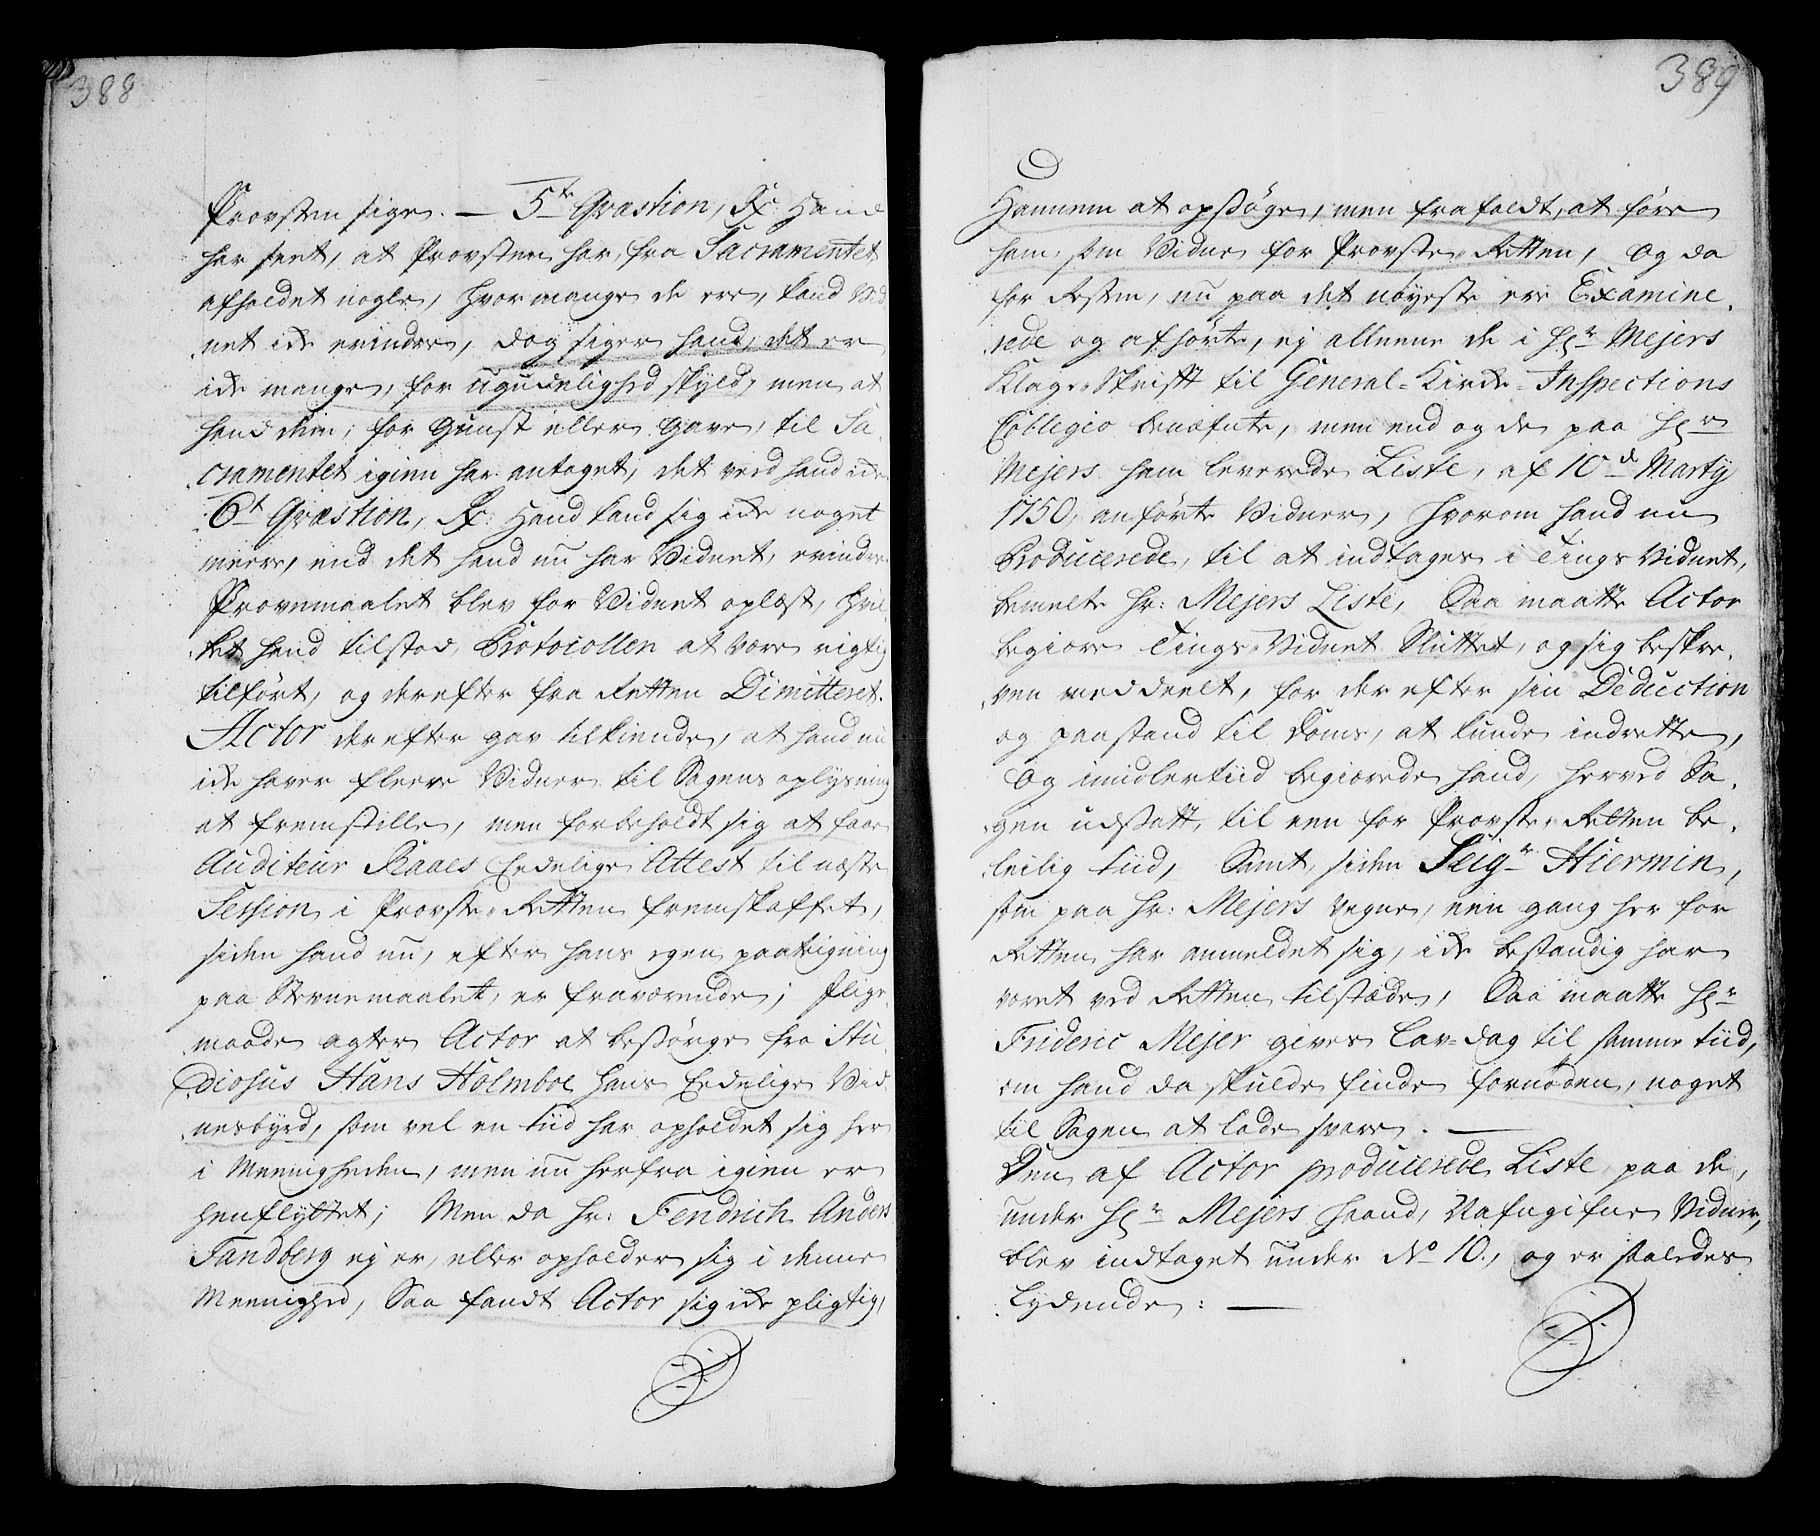 388
Provsten siger. — 5te Qvæstion, Rx: Hand
har seet, at Provsten har, fra Sacramentet
afholdet nogle, hvor mange de ere, kand Vid-
net icke erindre, dog siger hand, det er
icke mange, for ugudelighed skyld, men at
hand dem, for Gunst eller Gave, til Sa-
cramentet igien har antaget, det veed hand icke.
6te Qvæstion, Rx: Hand kand sig icke noget
meere, end det hand nu har Vidnet, erindre.
Provemaalet blev for Vidnet oplæst, hvil-
ket hand tilstod, Protocollen at være rigtig
tilført, og derefter fra Retten Dimitteret.
Actor derefter gav tilkiende, at hand nu
icke haver fleere Vidner til Sagens oplysning
at fremstille, men forbeholdt sig at faae
Auditeur Raaes Eedelige Attest til næste
Session i Provste-Retten fremskaffet,
siden hand nu, efter hans egen paategning
paa Stevnemaalet, er fraværende; Lige-
maade agter Actor at besørge fra Stu-
diosus Hans Holmboe hans Eedelige Vid-
nesbyrd, som vel en tiid har opholdet sig her
i Meenigheden, men nu herfra igien er
henflyttet; Men da Hr: Fendrich Anders
Tandberg ej er, eller opholder sig i denne
Meenighed, Saa fandt Actor sig icke pligtig,
389
Hannem at opsøge, men frafaldt, at føre
ham, som Vidne for Provste-Retten, Og da
her Resten, nu paa det nøyeste ere Examine-
rede og afhørte, ej alleene de i Hr Mejers
Klage-Skrift til General-Kirke-Inspections
Collegio benæfnte, men end og de paa Hr
Mejers ham leverede Liste, af 10d Marty
1750, anførte Vidner, hvorom hand nu
Producerede, til at indtages i Tings Vidnet,
bemelte Hr: Mejers Liste, Saa maatte Actor
begiære Tings-Vidnet Sluttet, og sig beskre-
ven meddeelt, for derefter sin Deduction
og paastand til Doms, at kunde indrette,
Og imidlertiid begiærede hand, herved Sa-
gen udsatt, til een for Provste-Retten be-
leilig tiid, Samt, siden Seigr Hiermin,
som paa Hr: Mejers Vegne, een gang her for
Retten har anmeldet sig, icke bestandig har
været ved Retten tilstæde, Saa maatte Hr
Frideric Mejer gives Lav-dag til samme tiid,
om hand da skulde finde fornøden, noget
til Sagen at lade svare. —
Den af Actor producerede Liste paa de,
under Hr Mejers Haand, Nafngifne Vidner,
blev indtaget under No 10., og er saaledes
Lydende: —